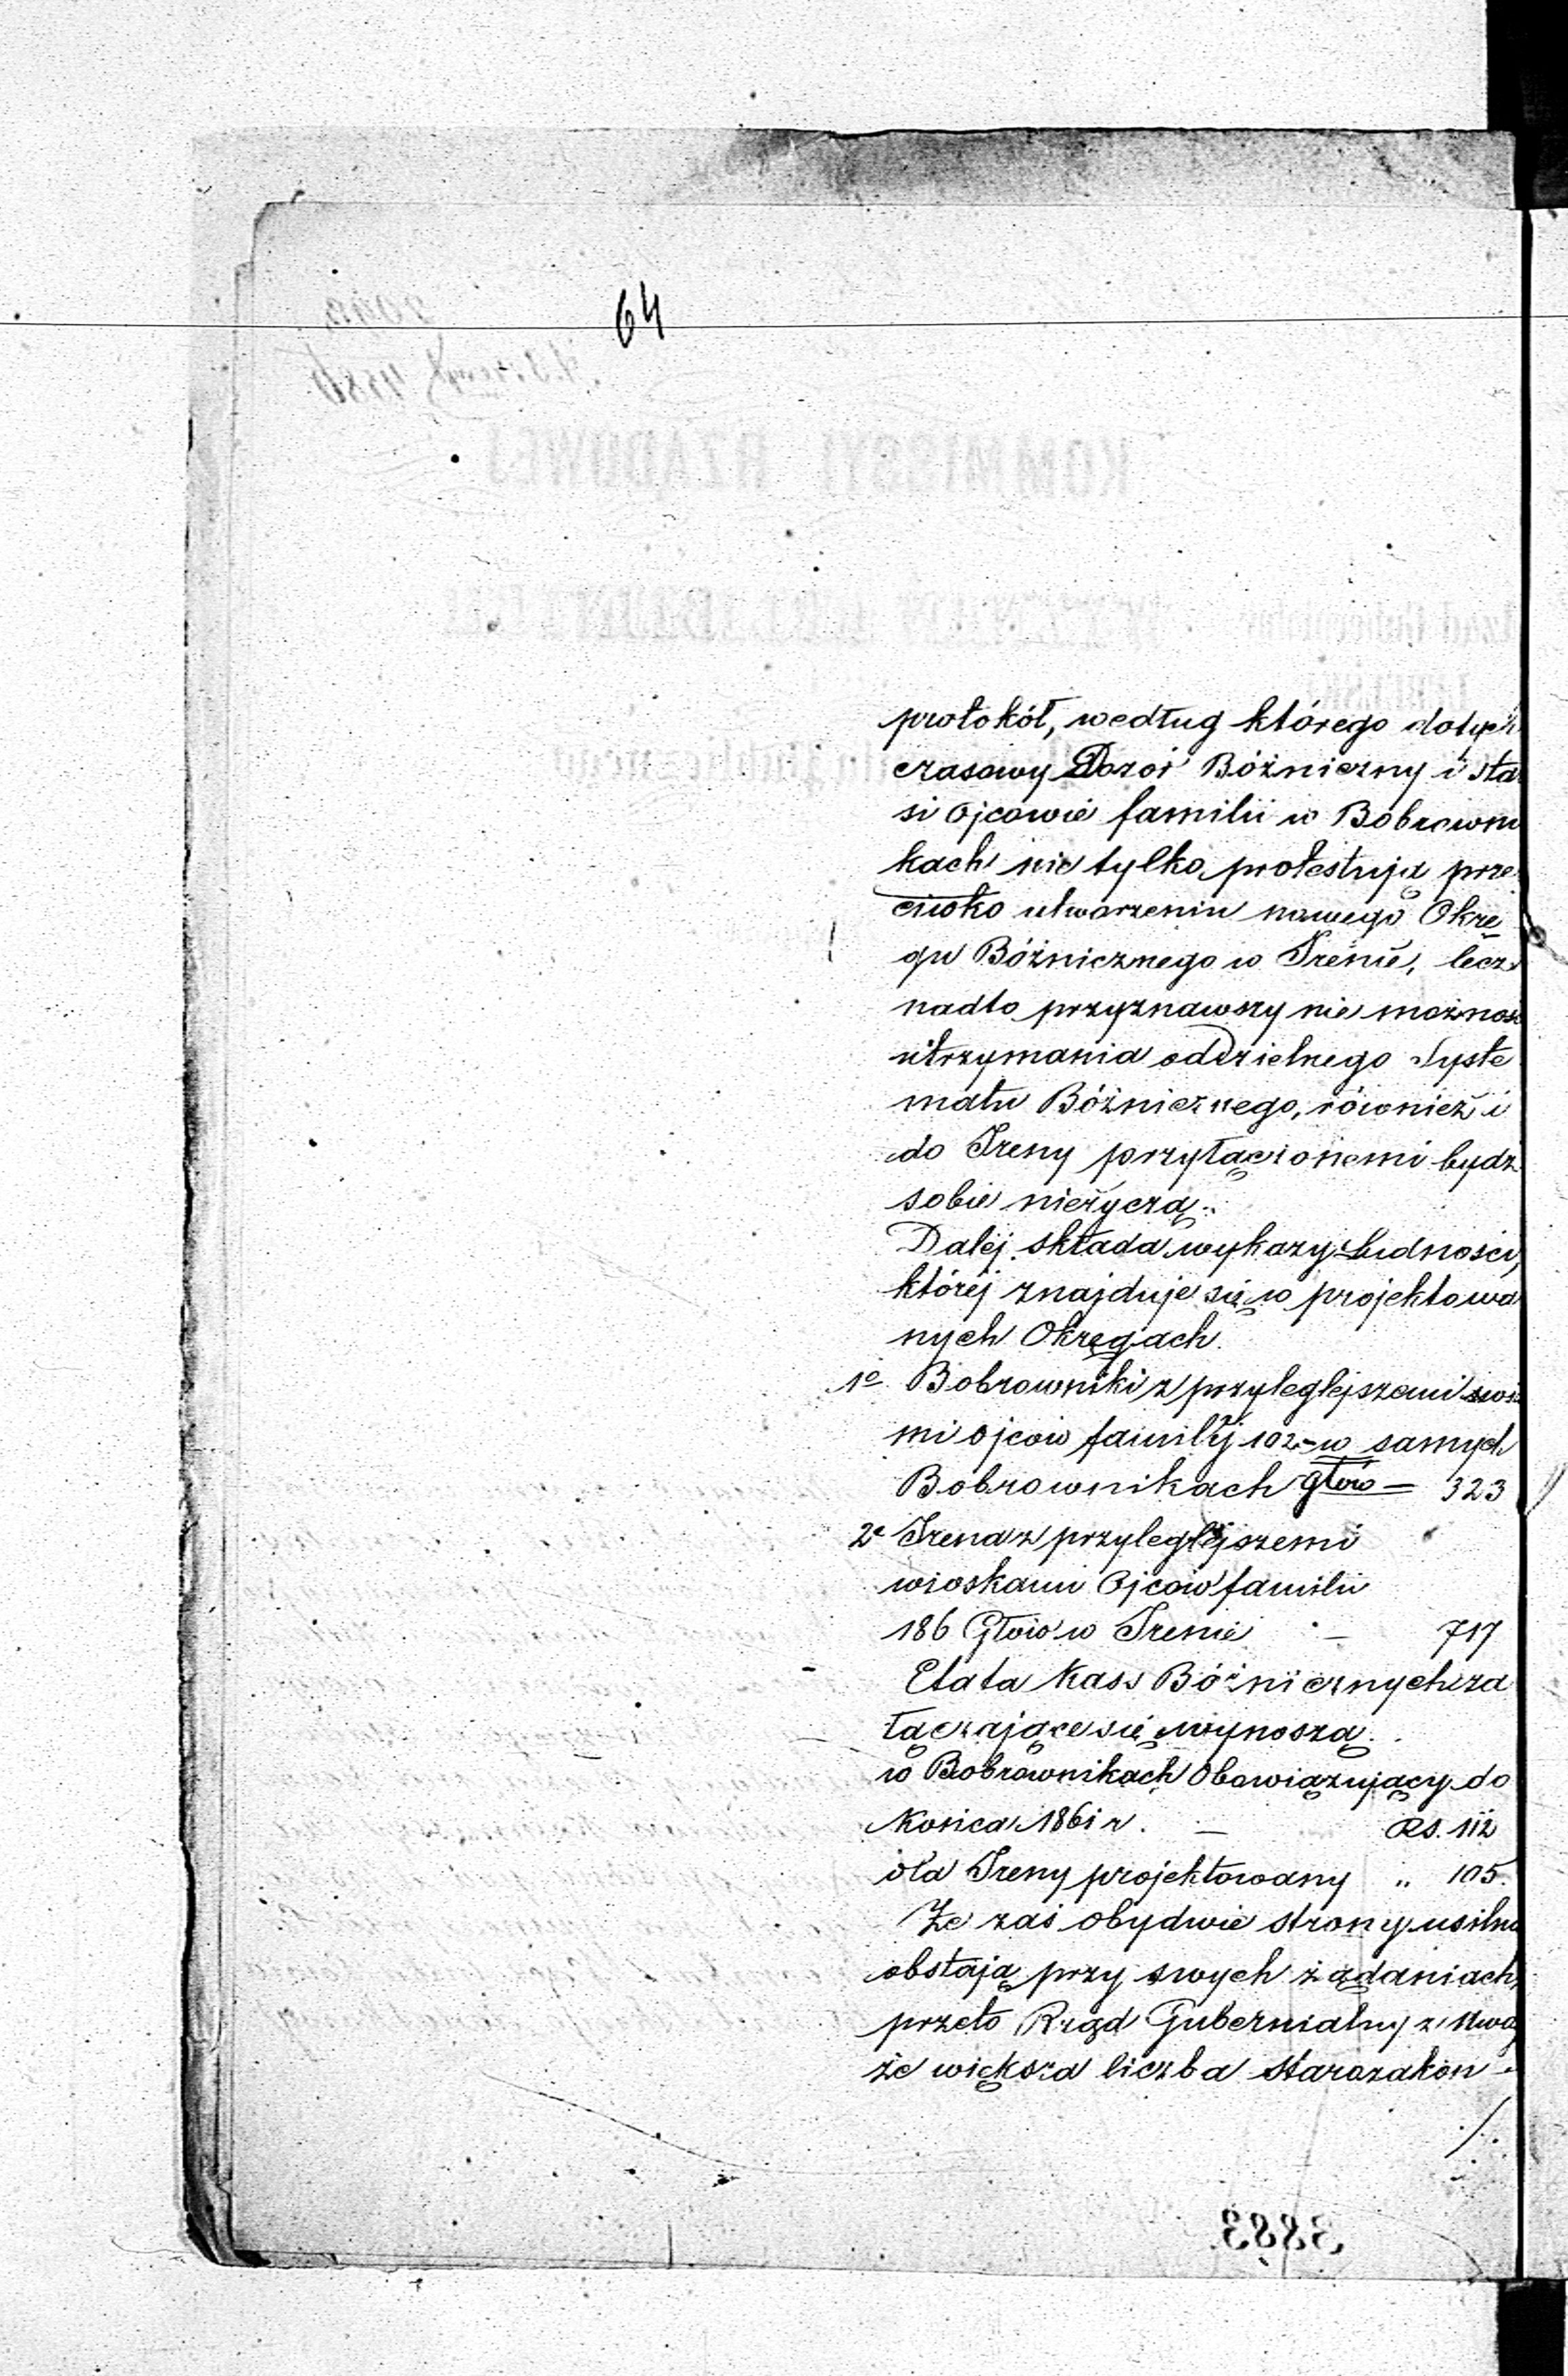 64
protokół, według którego dotych
czasowy Dozór Bóżniczny i sta
si ojcowie familii w Bobrowni
kach nie tylko protestują prze
ciwko utworzeniu nowego Okrę
gu Bóżnicznego w Irenie, lecz
nadto przyznawszy nie możność
utrzymania oddzielnego Syste
matu Bóżnicznego, również i
do Ireny przyłączonemi bydź
sobie nieżyczą.
Daléj składa wykazy Ludności,
któréj znajduje się w projektowa
nych Okręgach.
1e Bobrowniki z przyległejszemi
mi ojców familij 102 - w samych
Bobrownikach głów — 323
2e Irena z przyległejszemi
wioskami Ojców familii
186 Głów w Irenie — 717
Etata Kass Bóżnicznych za
łączające się wynoszą
w Bobrownikach Obowiązujący do
Końca 1861 r. — RS. 112
dla Ireny projektowany „ 105.
Że zaś obydwie strony usilnie
obstają przy swych żądaniach,
przeto Rząd Gubernialny z Uwag
że większa liczba starozakon-
./.
3883